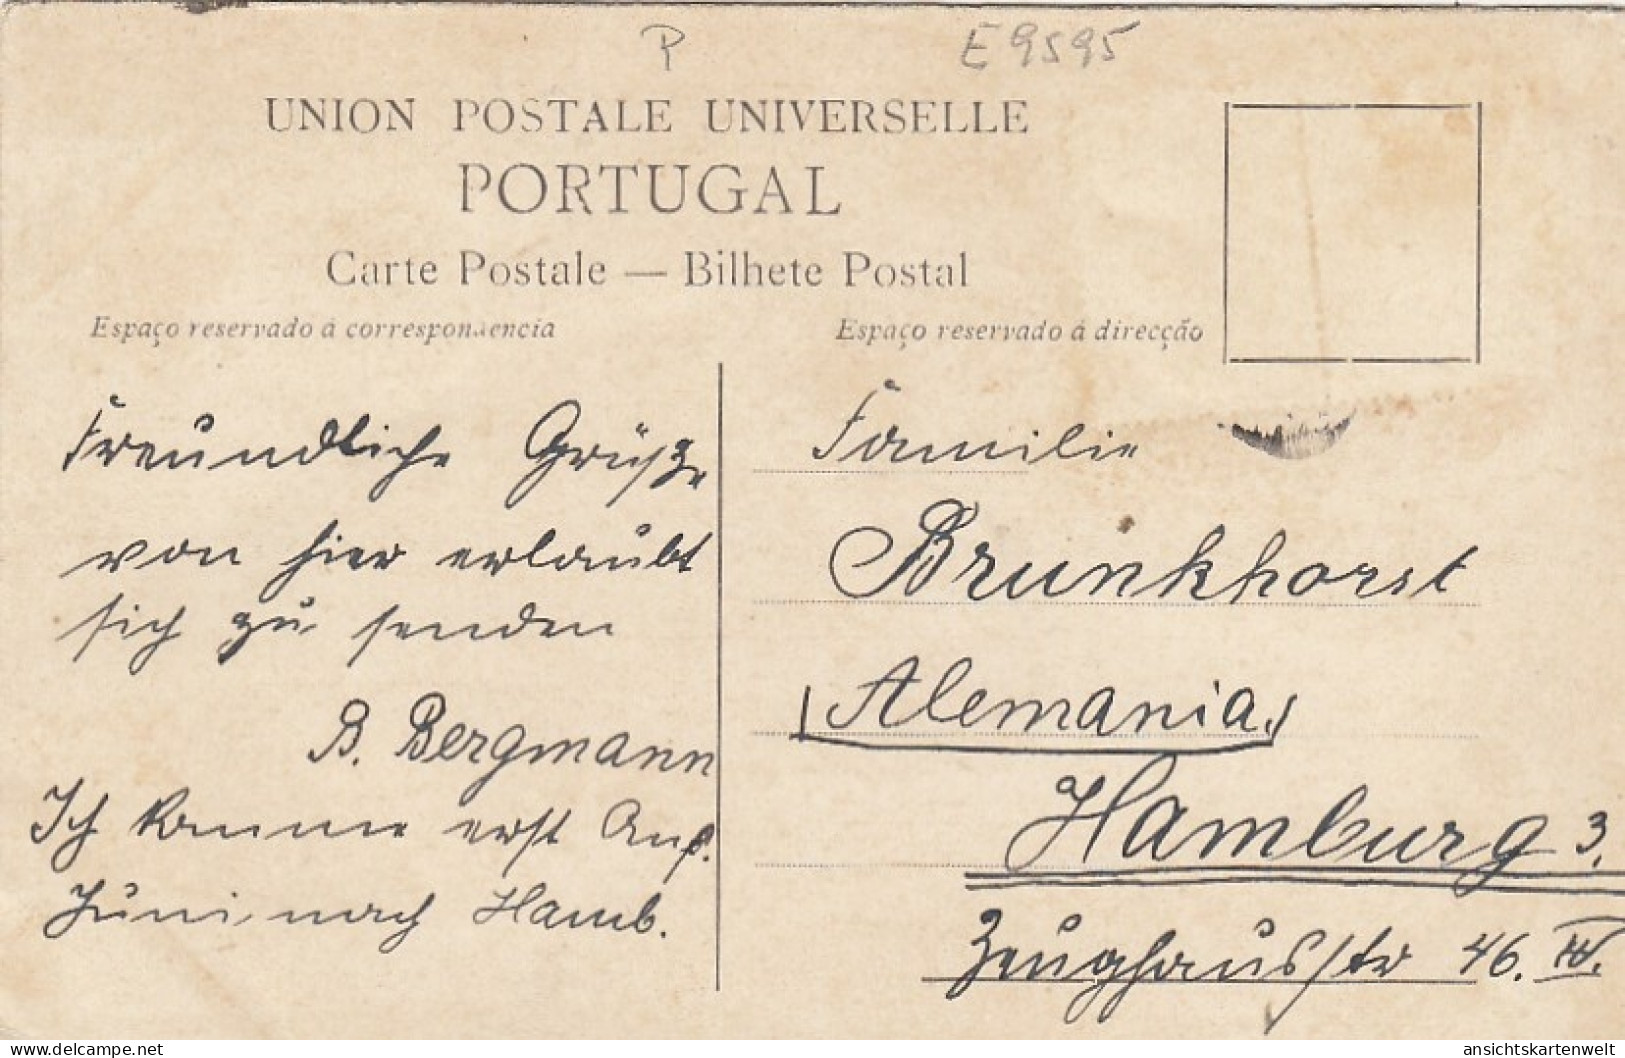 P
E 9595
UNION POSTALE UNIVERSELLE
PORTUGAL
Carte Postale — Bilhete Postal
Espaço reservado á correspondencia
Espaço reservado á direcção
Freundliche Grüße
von hier erlaubt
sich zu senden
B. Bergmann
Ich komme erst Anf.
Juni nach Hamb.
Familie
Brunkhorst
Alemania
Hamburg 3.
Zeughausstr 46. IV.
www.delcampe.net
ansichtskartenwelt